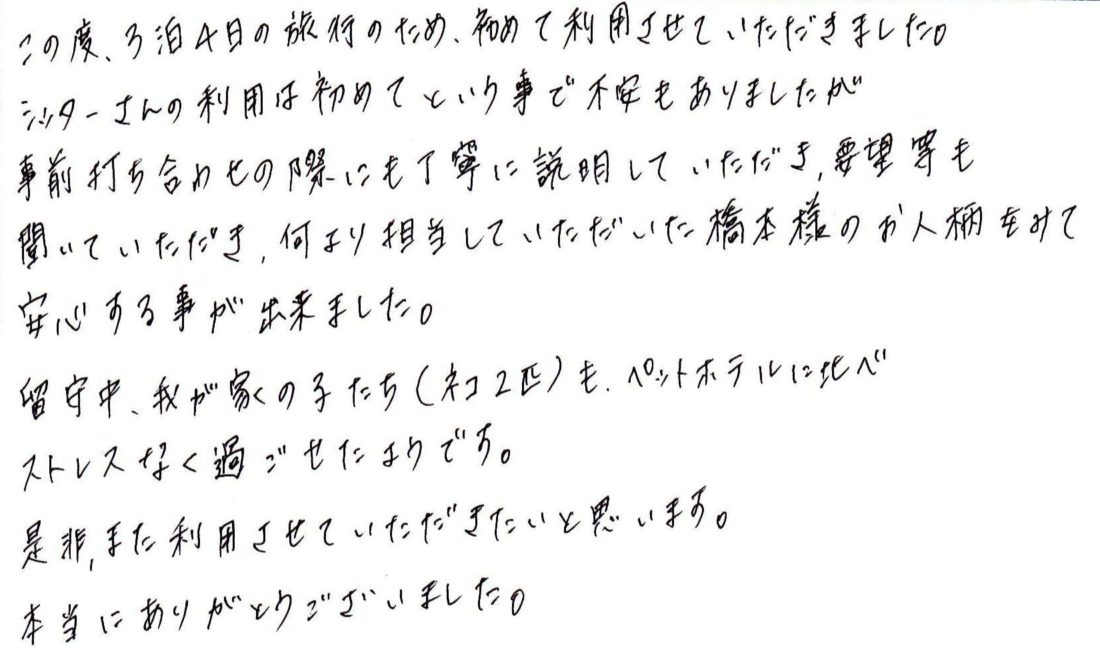 この度、3泊4日の旅行のため、初めて利用させていただきました。
シッターさんの利用は初めてという事で不安もありましたが
事前打ち合わせの際にも丁寧に説明していただき、要望等も
聞いていただき、何より担当していただいた橋本様のお人柄をみて
安心する事が出来ました。
留守中、我が家の子たち(ネコ2匹)も、ペットホテルに比べ
ストレスなく過ごせたようです。
是非、また利用させていただきたいと思います。
本当にありがとうございました。